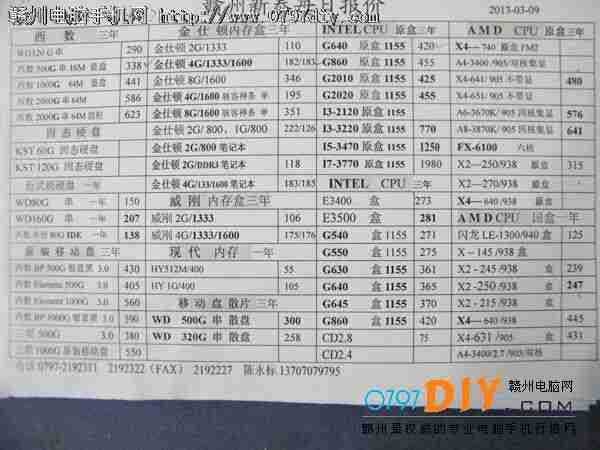 赣州电脑手机网 http://www.0797diy.com
赣州新春每日报价 2013-03-09
西 数 三年
WD320G串 290
西数 500G 串 16M 蓝盘 338
西数 1000G 串 64M 蓝盘 441
西数 2000G 串 64M 586
西数 2000G 串 64M 623
固态硬盘
KST 60G 固态硬盘
KST 120G 固态硬盘
台式机硬盘 一年
WD80G 串 一年 150
WD160G 串 一年 207
80G IDE 一年 138
原装移动盘 三年
500G 3.0 430
西数 Element 500G 3.0 405
西数 Element 1000G 3.0 560
3.0 590
500G 3.0 380
1000G 550
金仕顿 内存盒三年
金仕顿 2G/1333 110
金仕顿 4G/1333/1600 182/183
金仕顿 8G/1600 346
金仕顿 4G/1600 骇客神条 单 195
金仕顿 8G/1600 骇客神条 单 351
金仕顿 2G/ 800、1G/800 222/126
金仕顿 2G/800 笔记本
金仕顿 2G/DDR3 笔记本 118
金仕顿 4G/133/1600 笔记本 183/185
威刚 内存盒三年
威刚 2G/1333 106
威刚 4G/1333/1600 175/176
现代 内存 一年
HY512M/400 55
HY 1G/400 105
移动盘散片 三年
WD 500G 串 散盘 300
WD 320G 串 散盘 258
INTEL CPU 原盒三年
G640 原盒 1155 420
G860 原盒 1155 455
G2010 原盒 1155 425
G2020 原盒 1155 455
I3-2120 原盒 1155
I3-3220 原盒 1155 770
I5-3470 原盒 1155 1250
I7-3770 原盒 1155 1980
INTEL CPU 三年
E3400 盒 273
E3500 盒 281
G540 盒 1155 271
G550 盒 1155 275
G630 盒 1155 361
G640 盒 1155 365
G645 盒 1155 370
G860 盒 1155 420
CD2.8 75
CD2.4
AMD CPU 原盒三年
X4— 740 原盒 FM2
A4-3400 /905 双核集显
X4-641/ 905 不带显 480
X4-651/ 905 不带显
A6-3670K/ 905 四核集显 576
A8-3870K/ 905 四核集显 641
FX-6100 六核
X2—250/938 原盒 315
X2—270/938 原盒
X4—640/938 原盒
AMD CPU 国盒一年
闪龙 LE-1300/940 盒 125
X—145 /938 盒
X2 -245 /938 盒 239
X2 -250 /938 盒 247
X2 -215/938 盒
X4— 640 /938 445
X4—631 /905 盒 431
A4-3400/2.7 /905/双核
电话 0797-2192311 2192322（FAX） 2192227 陈永标 13707079795
0797DIY.COM 赣州电脑网
赣州最权威的专业电脑手机行情网